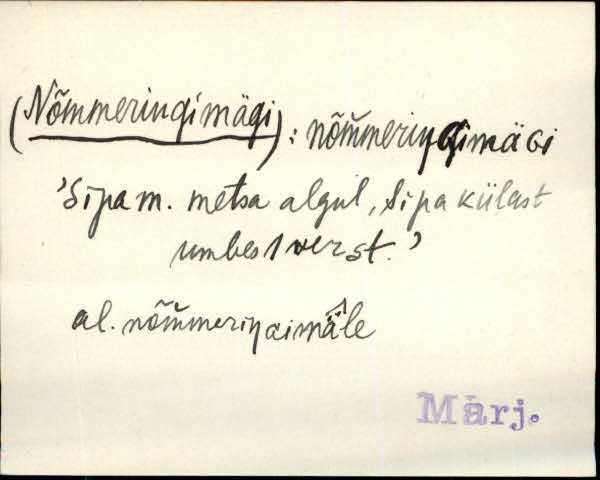 (Nõmmeringimägi): nõm̆meriŋɢimäɢi
'Sipa m. metsa algul, Sipa külast
umbes 1 verst.'
al. nõm̆meriŋɢimä̂le
Märj.